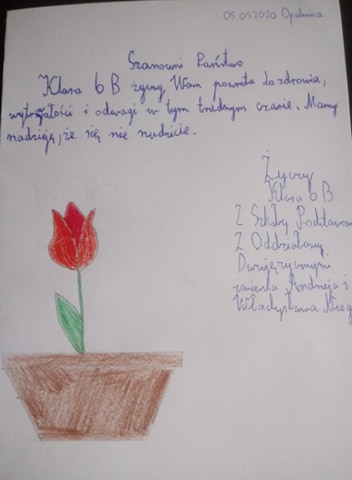 05.05.2020 Opalenica
Szanowni Państwo
Klasa 6 B życzy Wam powrotu do zdrowia,
wytrwałości i odwagi w tym trudnym czasie. Mamy
nadzieję, że się nie nudzicie.
Życzy
Klasa 6 B
Z Szkoły Podstawow
Z Oddziałamy
Dwujęzycznymi
imienia Andrzeja i
Władysława Nieg